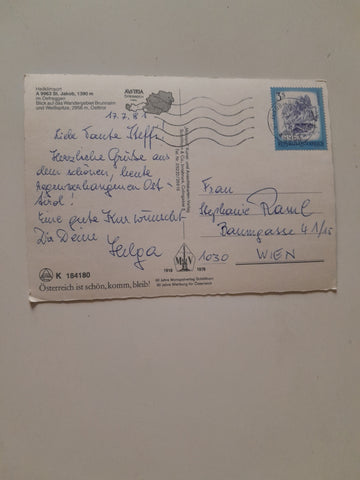 Heilklimaort
A 9963 St. Jakob, 1390 m
im Defreggen
Blick auf das Wandergebiet Brunnalm
und Weißspitze, 2956 m, Osttirol
AUSTRIA
17.7.81
Liebe Tante Steffi,
Herzliche Grüße aus
dem schönen, heute
regenverhangenen Ost-
tirol!
Eine gute Kur wünscht
Dir Deine
Helga
K 184180
Österreich ist schön, komm, bleib!
1919 1979
60 Jahre Werbung für Österreich
REPUBLIK ÖSTERREICH
Frau
Stephanie
Baumgasse 41/15
1030 WIEN